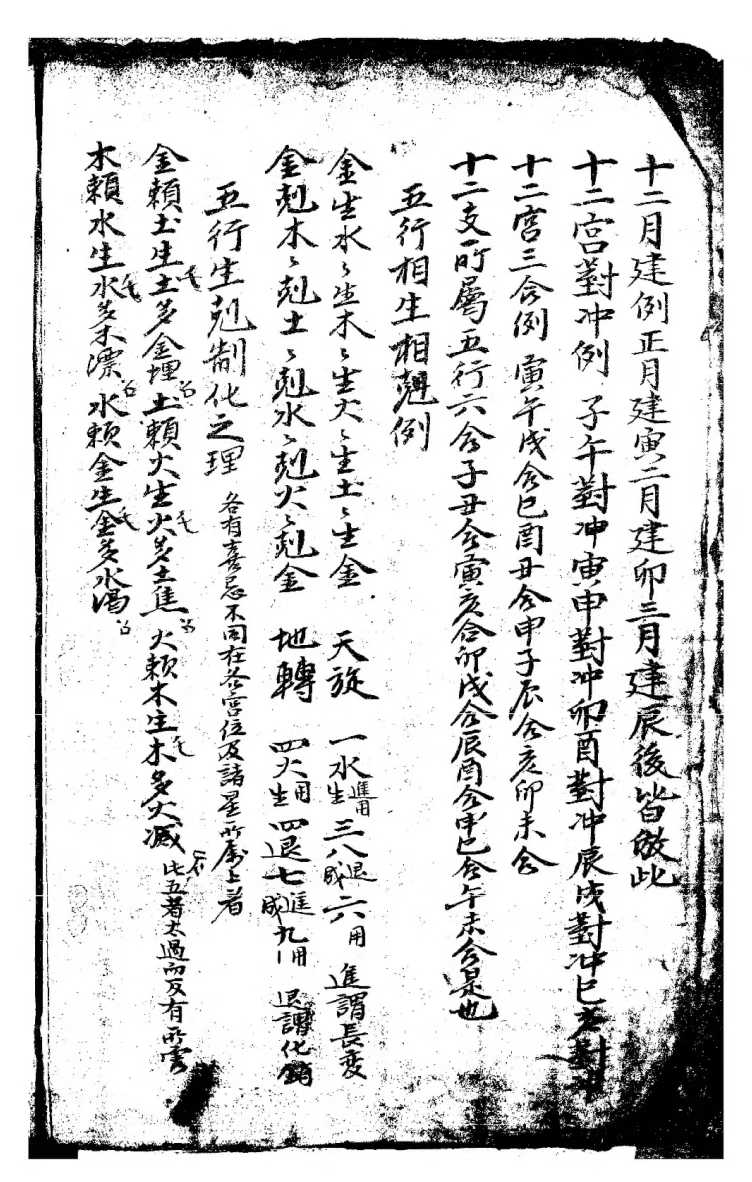 十二月建例正月建寅二月建卯三月建辰後皆倣此
十二宮對冲例 子午對冲寅申對冲卯酉對冲辰戌對冲巳亥對冲
十二宮三合例 寅午戌合巳酉丑合申子辰合亥卯未合
十二支所屬五行六合子丑合寅亥合卯戌合辰酉合申巳合午未合是也
五行相生相尅例
金生水〻生木〻生火〻生土〻生金 天旋 一水生進用三八成退六用 進謂長变
金尅木〻尅土〻尅水〻尅火〻尅金 地轉 四火生用四退七成進九用 退謂化銷
五行生尅制化之理 各有喜忌不同在各宮位及諸星所屬上着
金賴土生土多金埋 土賴火生火多土焦 火賴木生木多火滅 比五著太過而反有所害
木賴水生水多木漂 水賴金生金多水渴